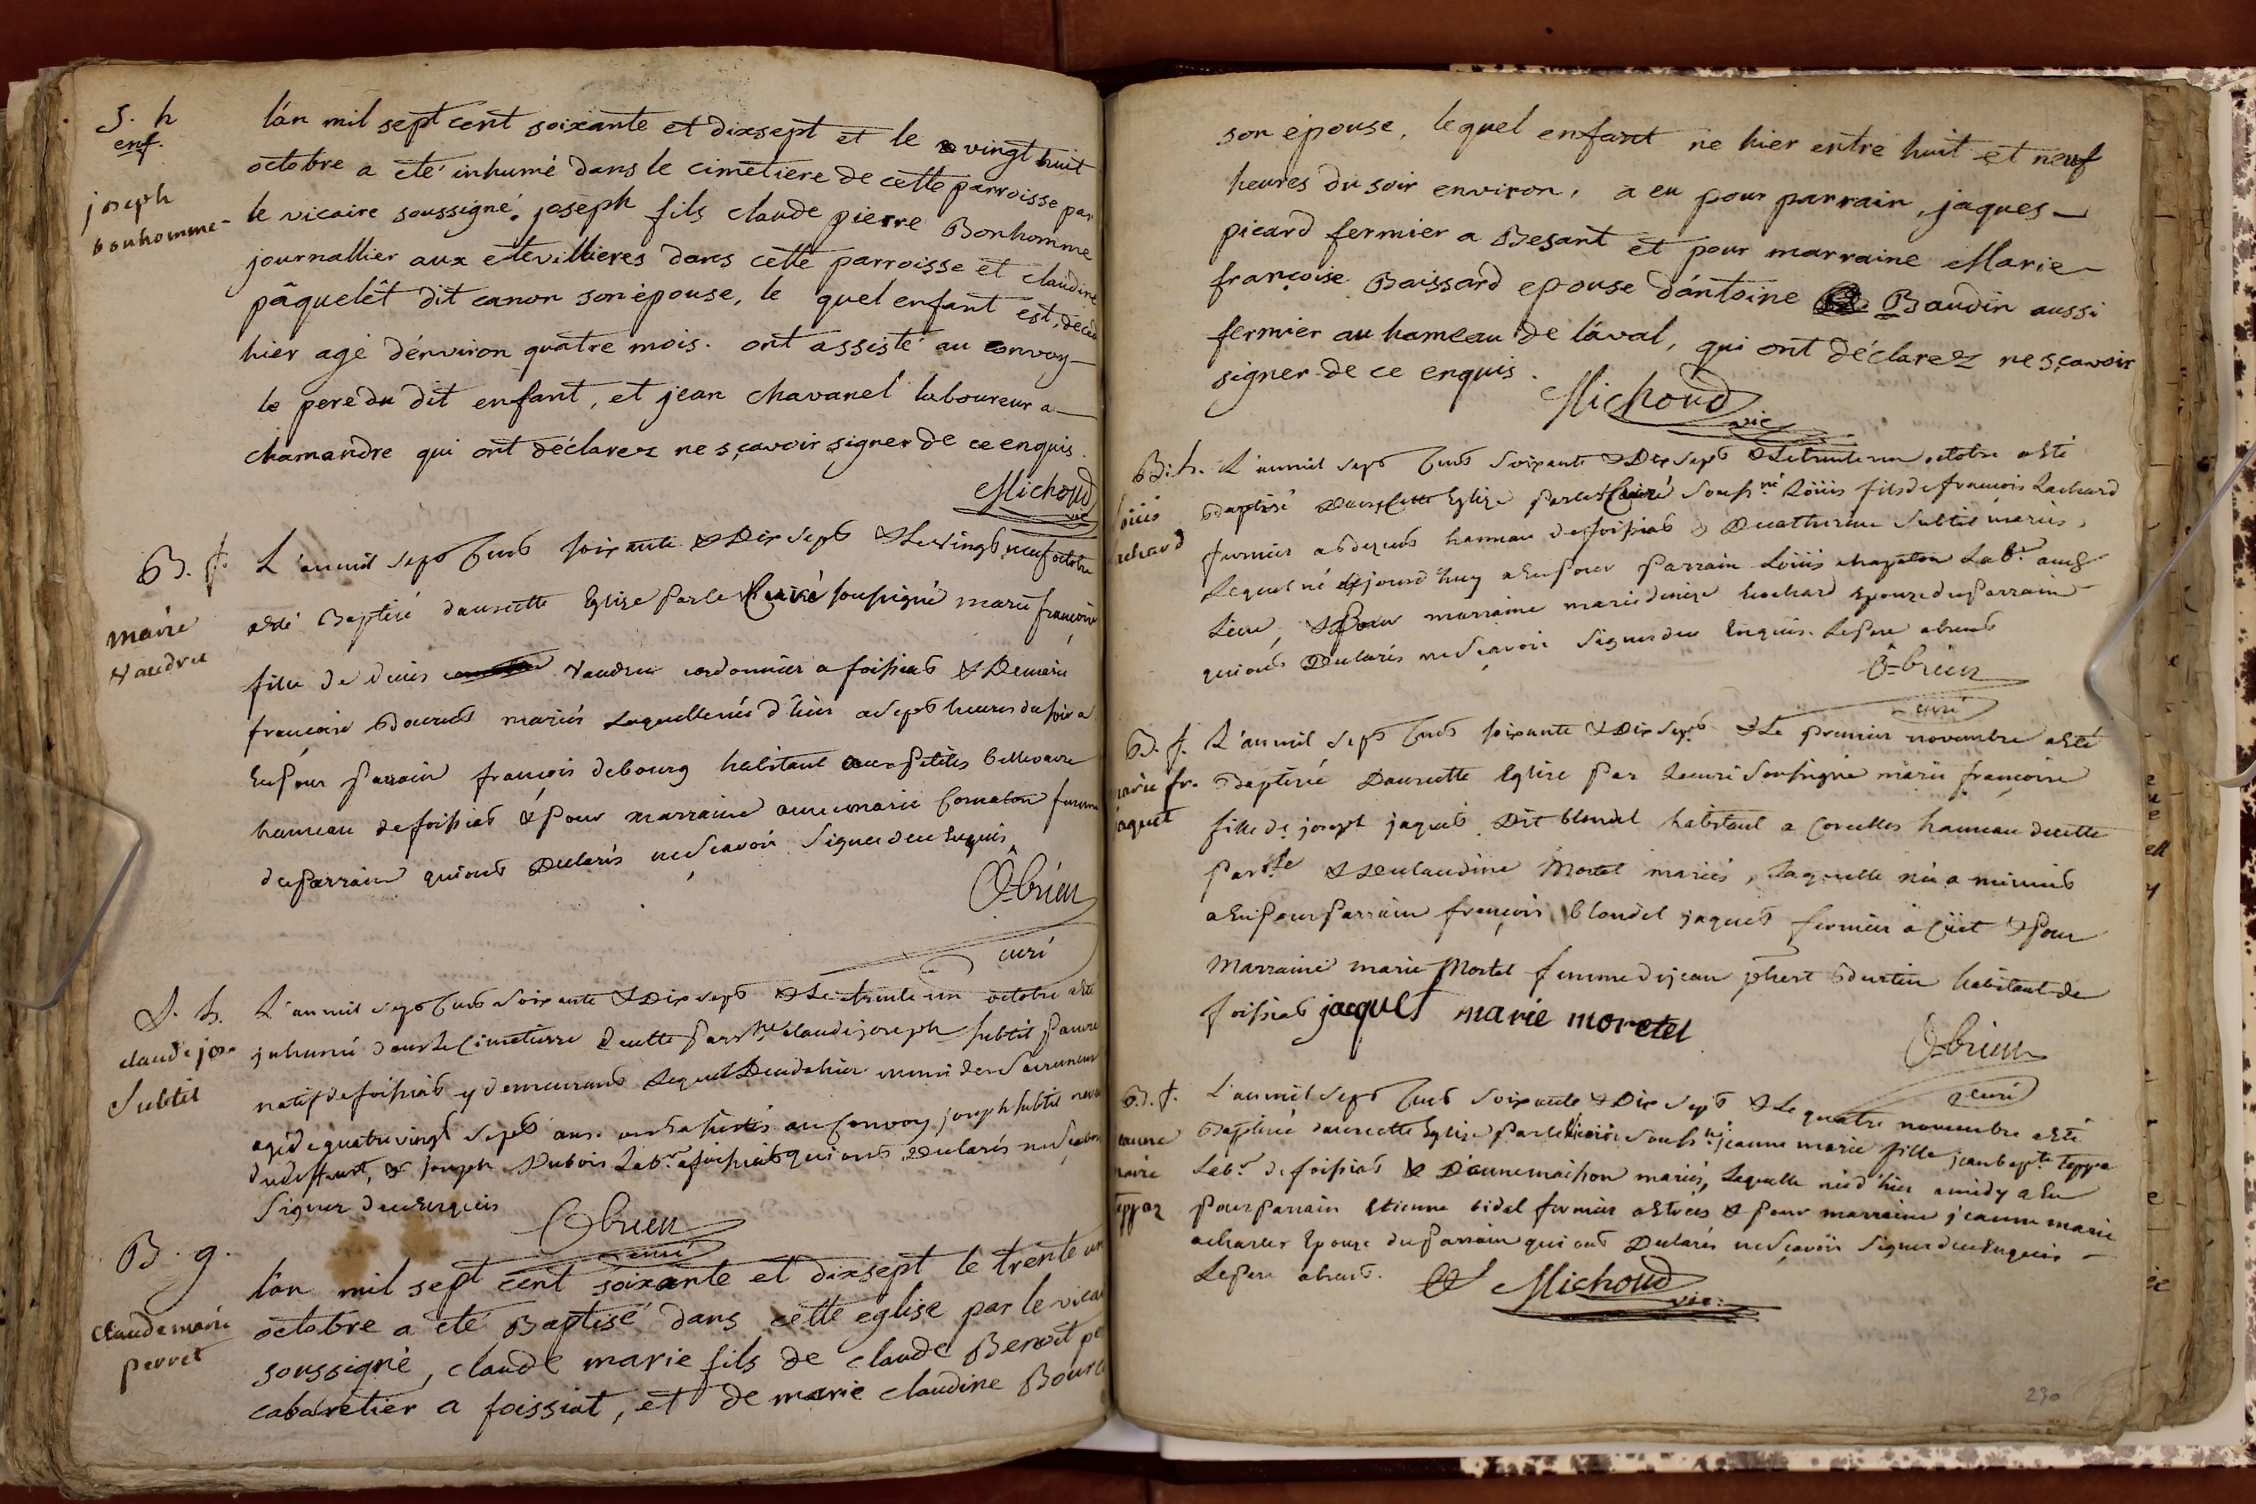 S. h
enf.
joseph
bonhomme
l'án mil sept cent soixante et dixsept et le vingt huit
octobre a été inhumé dans le cimetiere de cette parroisse par
le vicaire soussigné. joseph fils claude pierre Bonhomme
journallier aux etevillieres dans cette parroisse et claudine
pâquelêt dit canon son épouse, le quel enfant est, décedé
hier agé d'environ quatre mois. ont assisté au convoy
le pere du dit enfant, et jean chavanel laboureur a
chamandre qui ont déclarez ne sçavoir signer de ce enquis.
Michoud
vic
B. f.
marie
vaudru
L'an mil sept Cent soixante & Dix sept & Le vingt neuf octobre
a esté Baptisé dans cette Eglise par le Curé soussigné marie françoise
fille de denis vaudru cordonnier a foissiat & De marie
françoise mariés Laquelle née d'hier a sept heures du soir a
Eu pour parrain françois debourg habitant aux petites bellevavre
hameau de foissiat & pour marraine anne marie Comaton femme
du parrain qui ont Declarés ne sçavoir signer de ce Enquis
O-brien
curé
S. h.
claude jos.
Subtil
L'an mil sept Cent soixante & Dix sept & Le trente un octobre a esté
inhumé dans le Cimetierre de cette parr.sse claude joseph subtil pauvre
natif de foissiat y demeurant Lequel Decedé hier muni des Sacremens
agé de quatre vingt sept ans. ont assistés au Convoy joseph subtil neveu
du deffunt, & joseph Dubois Lab.r a foissiat qui ont Declarés ne sçavoir
signer de ce Enquis
O-brien
curé
B. g.
Claude marie
perret
l'án mil sept cent soixante et dixsept le trente un
octobre a été Baptisé dans cette eglise par le vicai
soussigné, claude marie fils de claude Benoit pe
cabaretier a foissiat, et de marie claudine Bourc
son épouse, lequel enfant né hier entre huit et neuf
heures du soir environ, a eu pour parrain, jaques
picard fermier a Besant et pour marraine Marie
françoise Baissard epouse d'antoine Baudin aussi
fermier au hameau de lával, qui ont déclarez ne sçavoir
signer de ce enquis.
Michoud
vic
B. h.
loüis
uchard
L'an mil sept Cent soixante & Dix sept & Le trente un octobre a esté
Baptisé Dans Cette Eglise par le Curé souss.né Loüis fils de françois Luchard
fermier a hameau de foissiat & De catherine Subtil mariés,
Lequel né aujourd'huy a Eu pour parrain Loüis chapaton Lab.r aud
Lieu, & pour marraine marie denise Luchard Epouse du parrain
qui ont Declarés ne sçavoir signer de ce Enquis. Le pere absent
O-brien
curé
B. f.
marie fr.
jaquet
L'an mil sept Cent soixante & Dix sept & Le premier novembre a esté
Baptisée Dans cette Eglise par Le curé soussigné marie françoise
fille de joseph jaquet Dit blondel habitant a Corcelles hameau de cette
par.sse & De claudine Mortel mariés, Laquelle née a minuit
a Eu pour parrain françois blondel jaquet fermier a Cüet & pour
Marraine marie Mortel femme de jean habitant de
foissiat jacquet marie moretel
O-brien
curé
B. f.
jeanne
marie
teppaz
L'an mil sept Cent soixante & Dix sept & Le quatre novembre a esté
Baptisée dans cette Eglise par le vicaire souss.né jeanne marie fille jean bap.te teppa
Lab.r de foissiat & D'anne maihon mariés, Laquelle née d'hier a midy a Eu
pour parrain Etienne vidal fermier & pour marraine jeanne marie
Epouse du parrain qui ont Declarés ne sçavoir signer de ce Enquis
Le pere absent.
Michoud
vic:
230